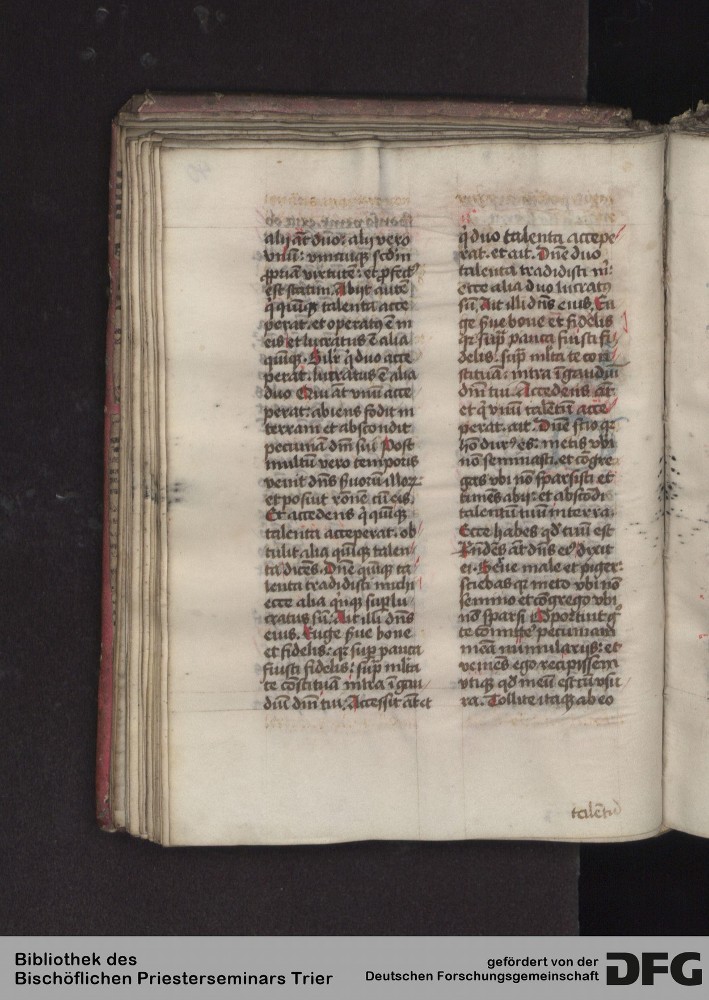 alij aūt duo: alij vero
vnū: vnicuiqꝫ scdm̄
ꝓpriam virtutē: et ꝓfectꝰ
est statim. Abijt autē
q̄ quinqꝫ talenta acce
perat. et operatꝰ ē in
eis et lucratus ē alia
quīqꝫ. Silr̄ q̄ duo acce
perat. lucratus ē alia
duo Qui āt vnū acce
perat: abiens fodit in
terram et abscondit
pecuniā dn̄i sui Post
multū vero temporis
venit dn̄s ẜuorū illoꝝ:
et posuit rōnē cū eis.
Et accedens q̄ quīqꝫ
talenta acceperat. ob
tulit alia quīqꝫ talen
ta dicēs. Dn̄e quīqꝫ ta
lenta tradidisti michi
ecce alia qīnqꝫ suꝑlu
cratus sū. Ait illi dn̄s
eius. Euge ẜue bone
et fidelis: qꝛ suꝑ pauca
fuisti fidelis: suꝑ mlta
te cōstituā intra ī gau
diū dn̄i tui. Accessit āt et
q̄ duo talenta accepe
rat. et ait. Dn̄e duo
talenta tradidisti m̄:
ecce alia duo lucratꝰ
sū. Ait illi dn̄s eius. Eu
ge ẜue bone et fidelis
qꝛ suꝑ pauca fuisti fi
delis. suꝑ mlta te con
stituā: intra ī gaudiū
dn̄i tui. Accedens āt
et q̄ vnū talentū acce
perat. ait. Dn̄e scio qꝛ
hō durꝰ es: metis vbi
nō seminasti. et cōgre
gas vbi nō sparsisti et
timēs abij: et abscodi
talentum tuū in terra.
Ecce habes qd̄ tuū est
Rn̄dēs āt dn̄s eiꝰ dixit
ei. Serue male et piger:
sciebas qꝛ meto vbi nō
semino et cōgrego vbi
nō sparsi Oportuit gͦ
te cōmittere pecuniam
meā nūmularijs: et
veniēs ego recipissem
vtiqꝫ qd̄ meū est cū vsu
ra. Tollite itaqꝫ ab eo
talētū
Bibliothek des
Bischöflichen Priesterseminars Trier
gefördert von der
Deutschen Forschungsgemeinschaft
DFG